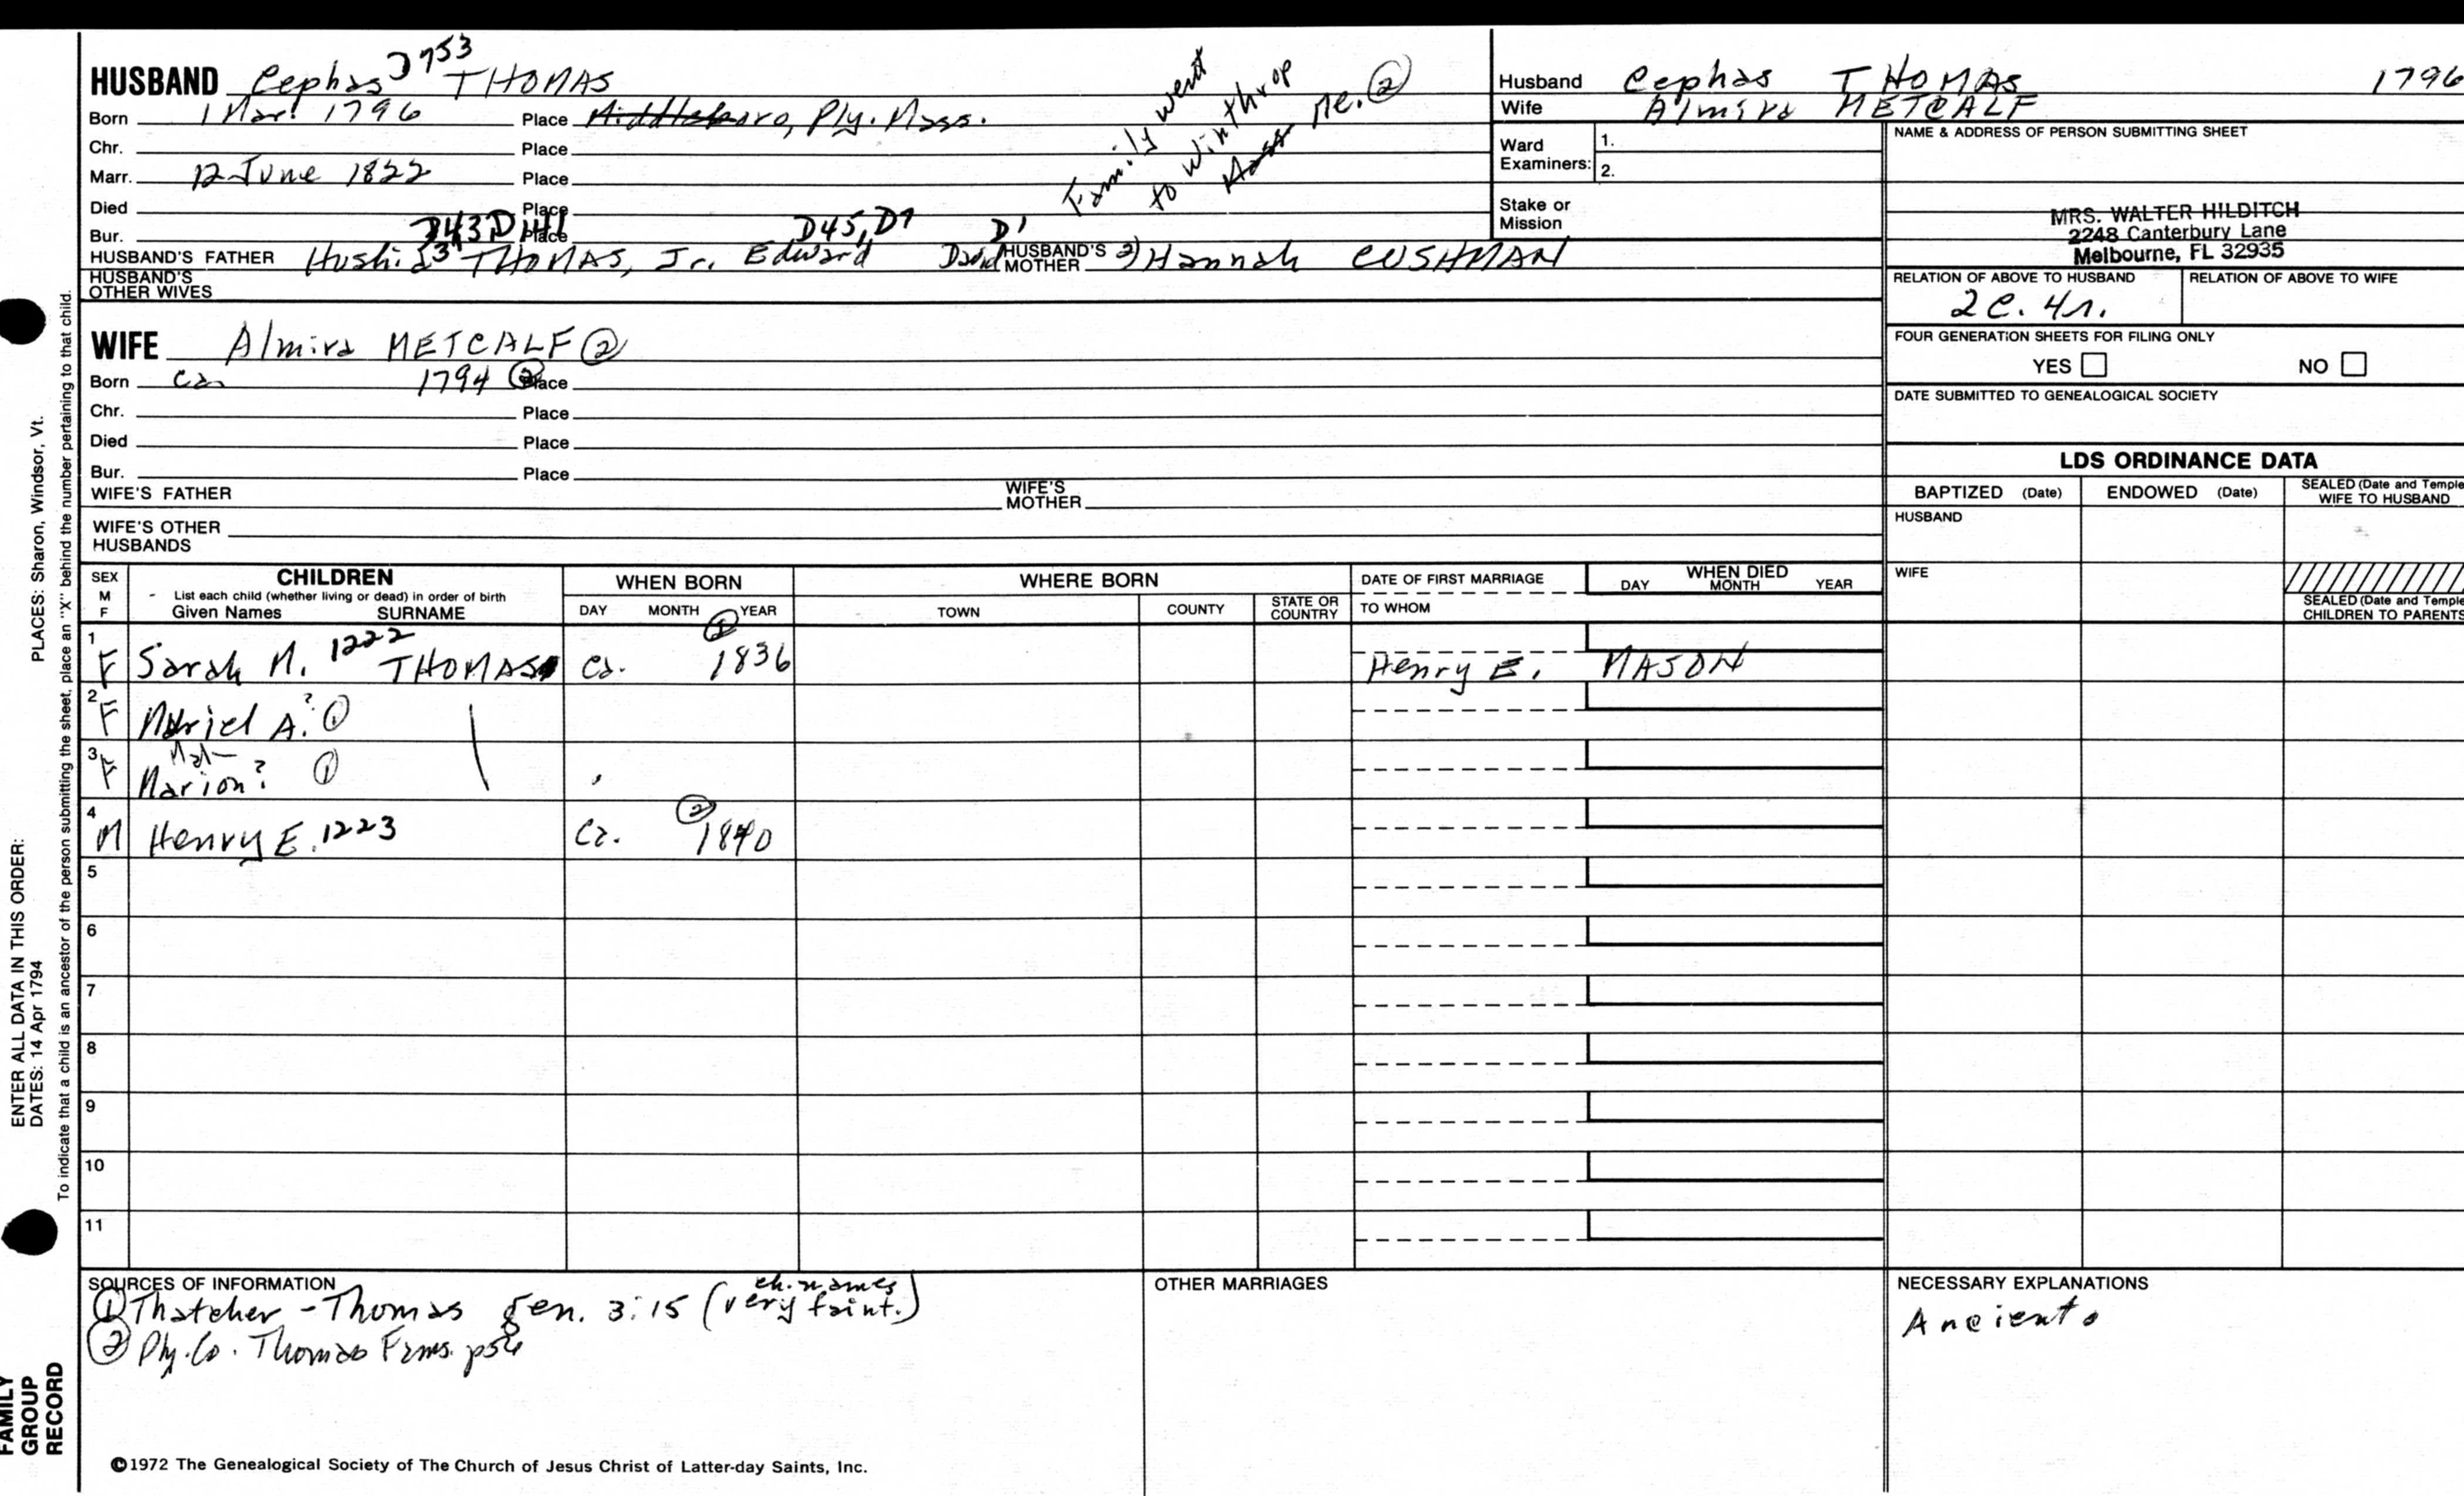 HUSBAND Cephas D753 THOMAS
Born 1 Mar. 1796 Place Middleboro, Ply. Mass.
Chr. Place
Marr. 12 June 1822 Place
Died Place
Bur. Place
D43 D141 D45, D7 D1
HUSBAND'S FATHER Hushia THOMAS, Jr. Edward David HUSBAND'S MOTHER 2) Hannah CUSHMAN
HUSBAND'S OTHER WIVES
Family went
to Winthrop
Mass Me. ②
WIFE Almira METCALF ②
Born ca 1794 ② Place
Chr. Place
Died Place
Bur. Place
WIFE'S FATHER WIFE'S MOTHER
WIFE'S OTHER HUSBANDS
Husband Cephas THOMAS 1796
Wife Almira METCALF
Ward Examiners: 1. 2.
Stake or Mission
NAME & ADDRESS OF PERSON SUBMITTING SHEET
MRS. WALTER HILDITCH
2248 Canterbury Lane
Melbourne, FL 32935
RELATION OF ABOVE TO HUSBAND RELATION OF ABOVE TO WIFE
2c. 4r.
FOUR GENERATION SHEETS FOR FILING ONLY
YES NO
DATE SUBMITTED TO GENEALOGICAL SOCIETY
LDS ORDINANCE DATA
BAPTIZED (Date) ENDOWED (Date) SEALED (Date and Temple WIFE TO HUSBAND
HUSBAND
WIFE
SEALED (Date and Temple CHILDREN TO PARENTS
SEX M F
CHILDREN
- List each child (whether living or dead) in order of birth
Given Names SURNAME
WHEN BORN
DAY MONTH YEAR
WHERE BORN
TOWN COUNTY STATE OR COUNTRY
DATE OF FIRST MARRIAGE
TO WHOM
WHEN DIED
DAY MONTH YEAR
1 F Sarah M. 1222 THOMAS ca. ① 1836 Henry E. MASON
2 F Muriel A.? ①
3 F Marion? ①
4 M Henry E. 1223 Ca. ② 1840
5
6
7
8
9
10
11
SOURCES OF INFORMATION
① Thatcher - Thomas gen. 3:15 (ch. names very faint.)
② Ply. Co. Thomas Fams. p56
OTHER MARRIAGES
NECESSARY EXPLANATIONS
Ancients
©1972 The Genealogical Society of The Church of Jesus Christ of Latter-day Saints, Inc.
ENTER ALL DATA IN THIS ORDER:
DATES: 14 Apr 1794 PLACES: Sharon, Windsor, Vt.
To indicate that a child is an ancestor of the person submitting the sheet, place an "X" behind the number pertaining to that child.
FAMILY
GROUP
RECORD